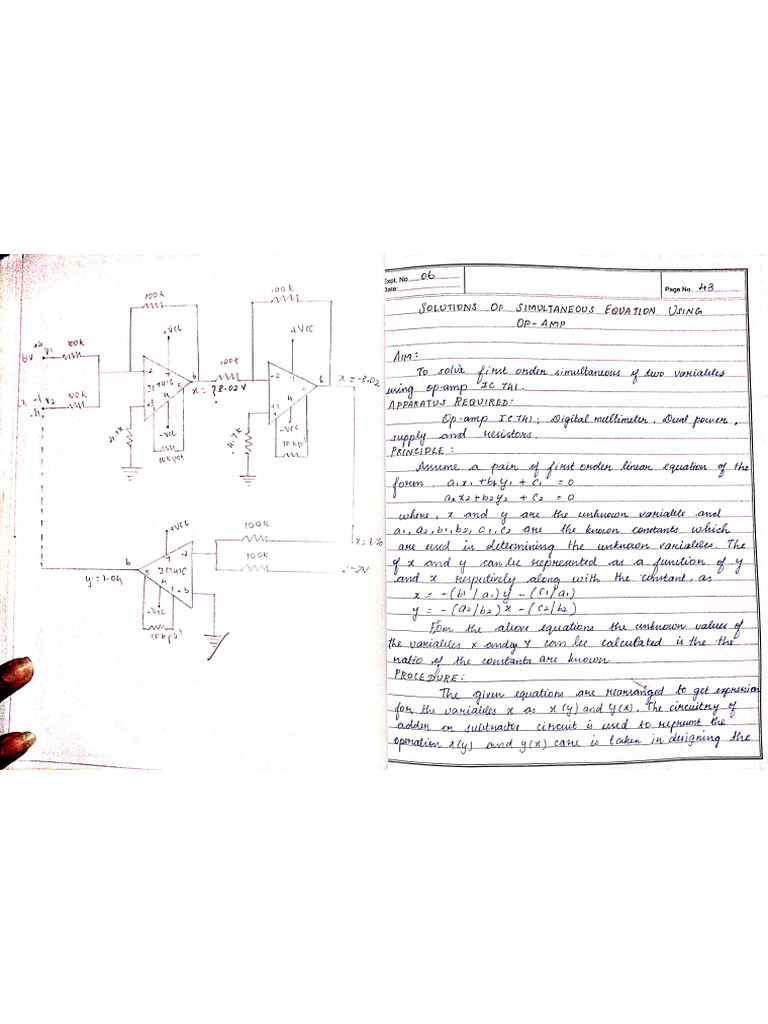 100k
100k
+VCC
+VCC
6V
V1
100k
100k
-2
7
6
-2
7
6
x = -3.02
IC741C
5
x = 3.02V
V2
100k
+3
4
+3
4
4.7k
-VCC
4.7k
-VCC
10k pot
10k pot
+VCC
100k
6
7
-2
100k
IC741C
5
-2V
y = 1.04
4
+3
-VCC
10k pot
Expt. No. 06
Date:
Page No. 43
SOLUTIONS OF SIMULTANEOUS EQUATION USING
OP-AMP
AIM:
To solve first order simultaneous of two variables
using op-amp IC 741.
APPARATUS REQUIRED:
Op-amp IC741; Digital multimeter. Dual power,
supply and resistors.
PRINCIPLE:
Assume a pair of first order linear equation of the
form a1x1 + b1y1 + c1 = 0
a2x2 + b2y2 + c2 = 0
where, x and y are the unknown variable and
a1, a2, b1, b2, c1, c2 are the known constants which
are used in determining the unknown variables. The
of x and y can be represented as a function of y
and x respitively along with the constant, as
x = -(b1/a1)y - (c1/a1)
y = -(a2/b2)x - (c2/b2)
From the above equations the unknown values of
the variables x and y can be calculated is the the
ratio of the constants are known
PROCEDURE:
The given equations are rearranged to get expression
for the variables x as x(y) and y(x). The circuitry of
adder or subtractor circuit is used to represent the
operation x(y) and y(x) care is taken in designing the